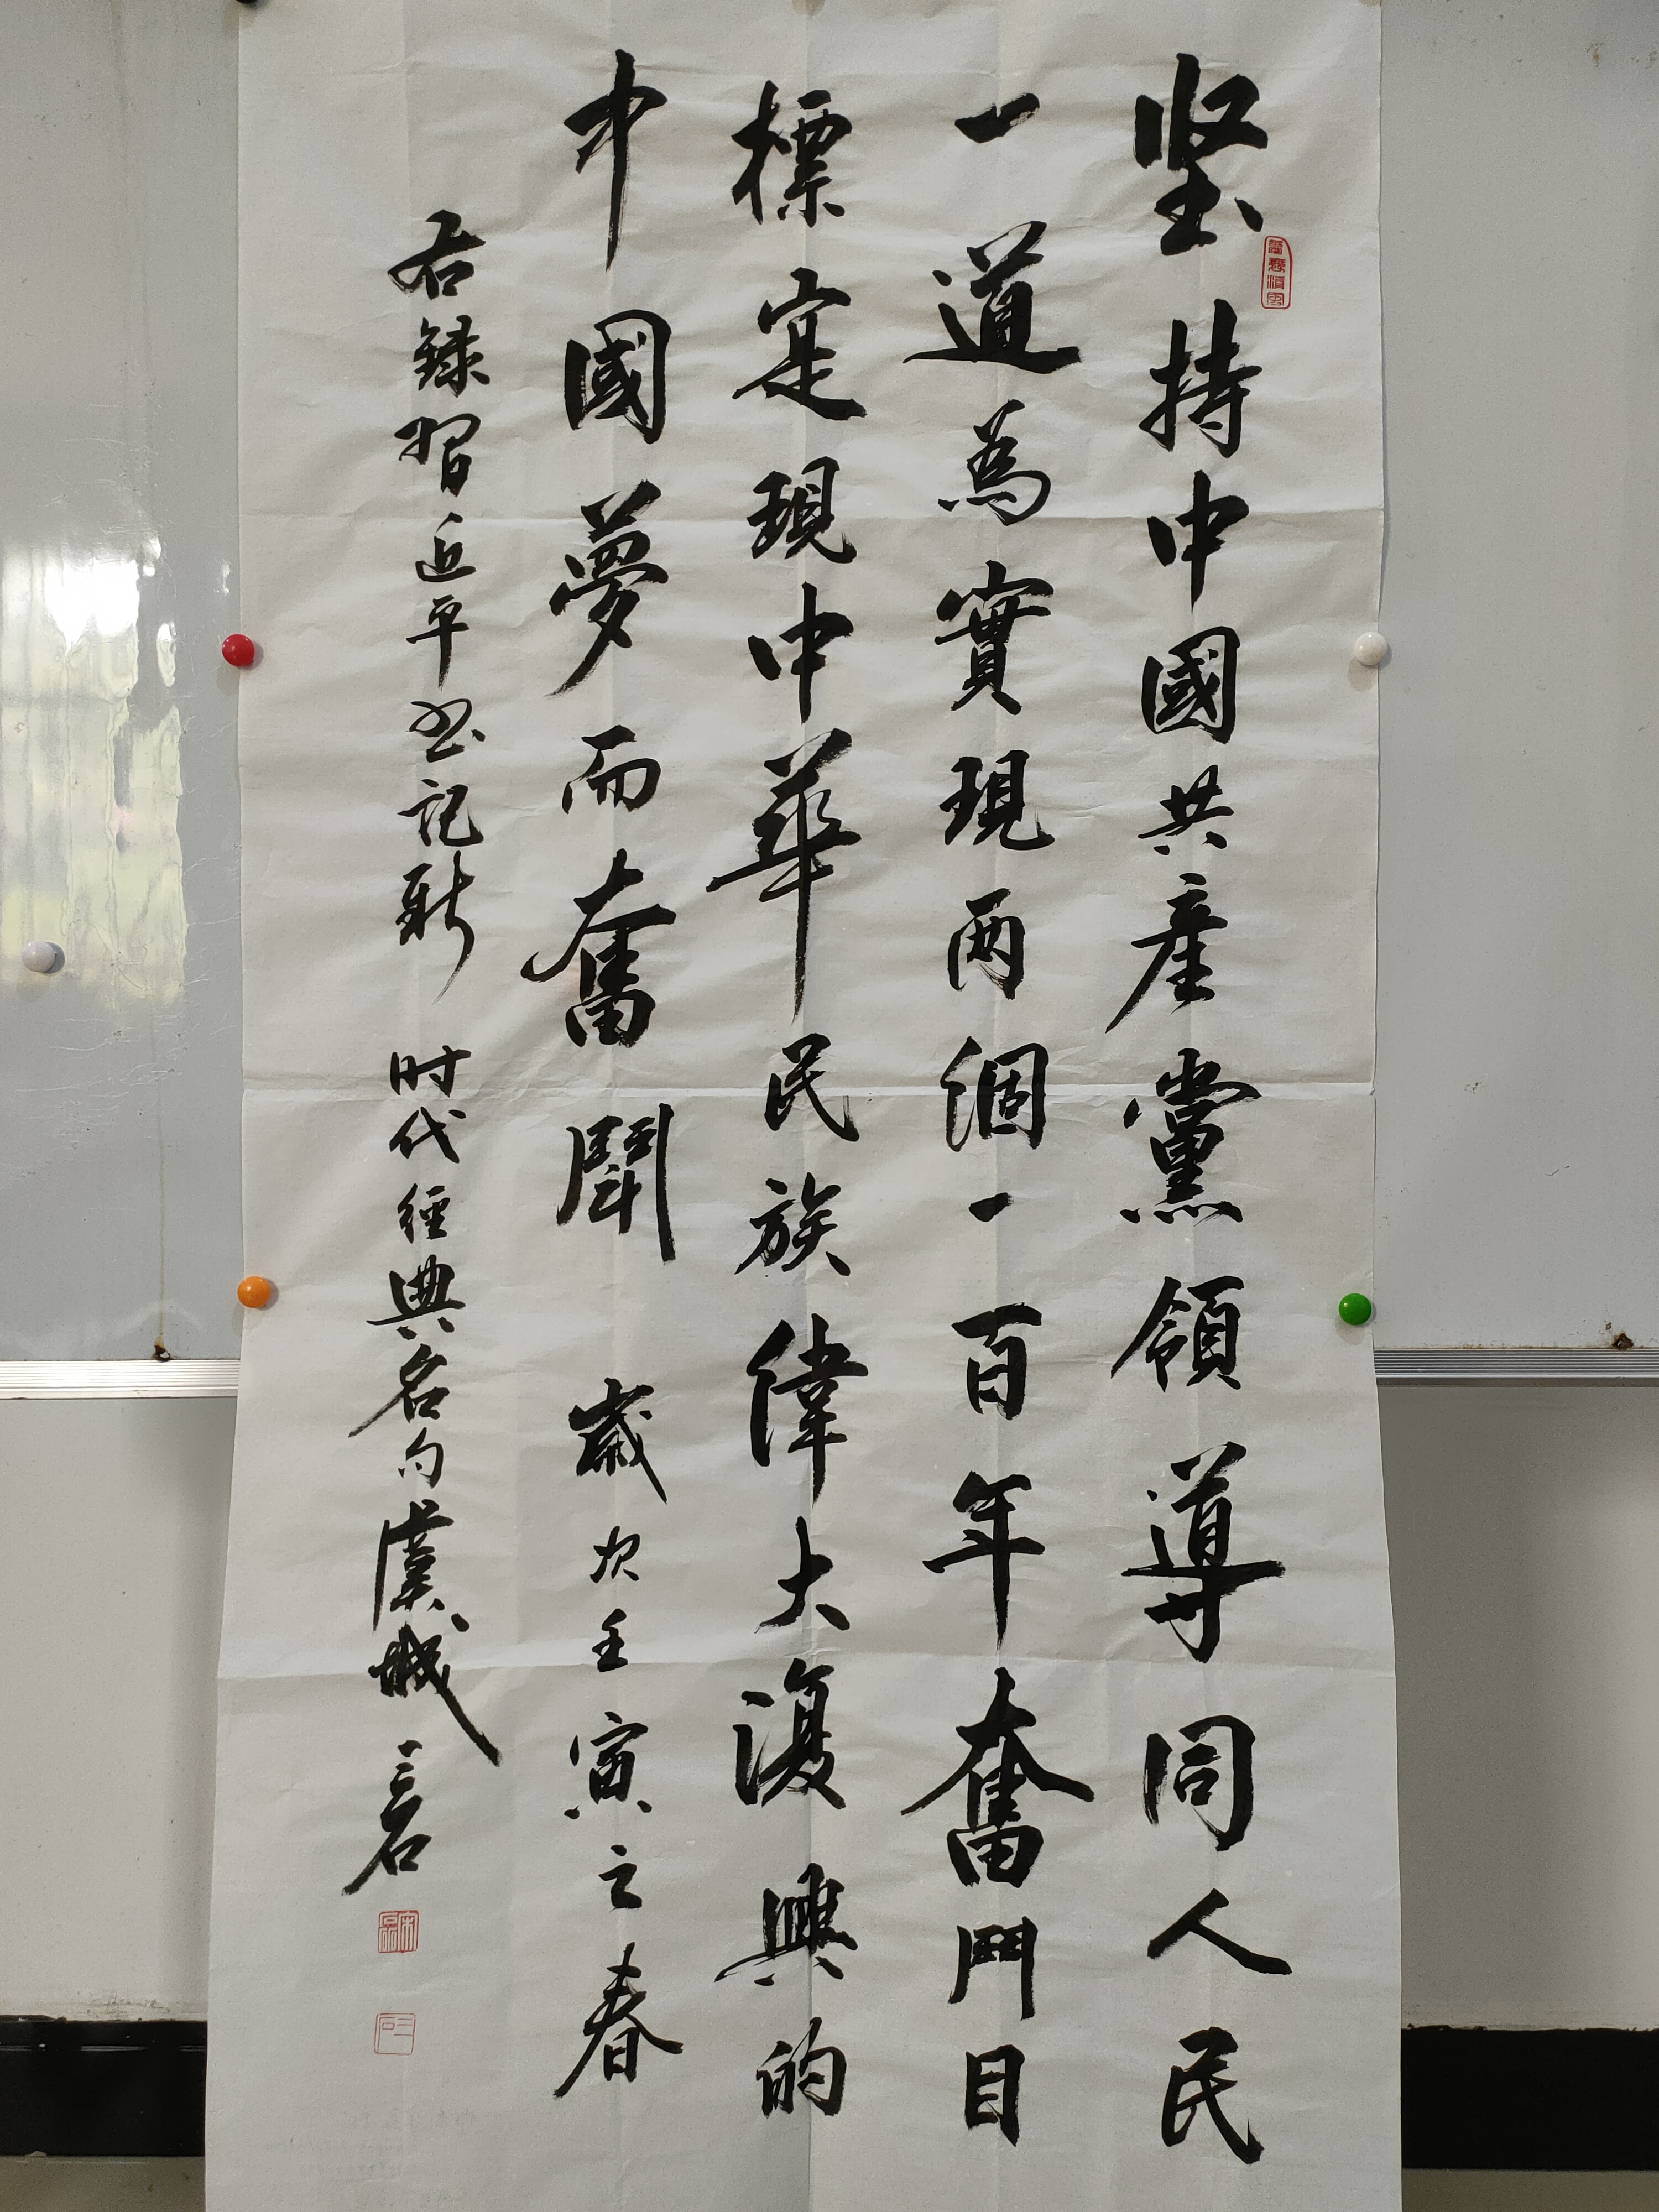 坚持中國共產黨領導同人民
一道為實現兩個一百年奮鬥目
標定現中華民族偉大復興的
中國夢而奮鬪 歲次壬寅之春
右録習近平书記新时代經典名句虞城三石